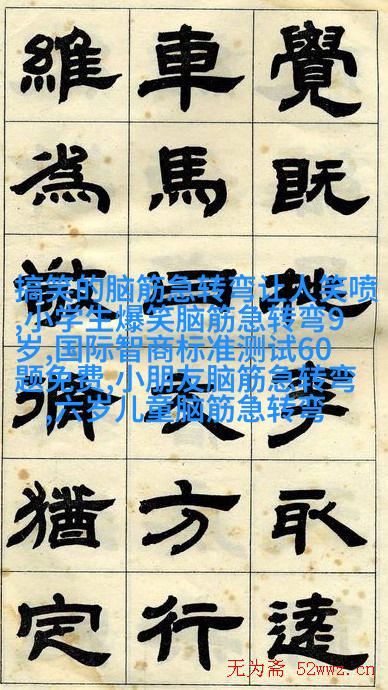 覺既取
車馬方行
維為猶定
搞笑的脑筋急转弯让人笑喷
,小学生爆笑脑筋急转弯9
岁,国际智商标准测试60
题免费,小朋友脑筋急转弯
,六岁儿童脑筋急转弯
无为斋 52wwz.cn